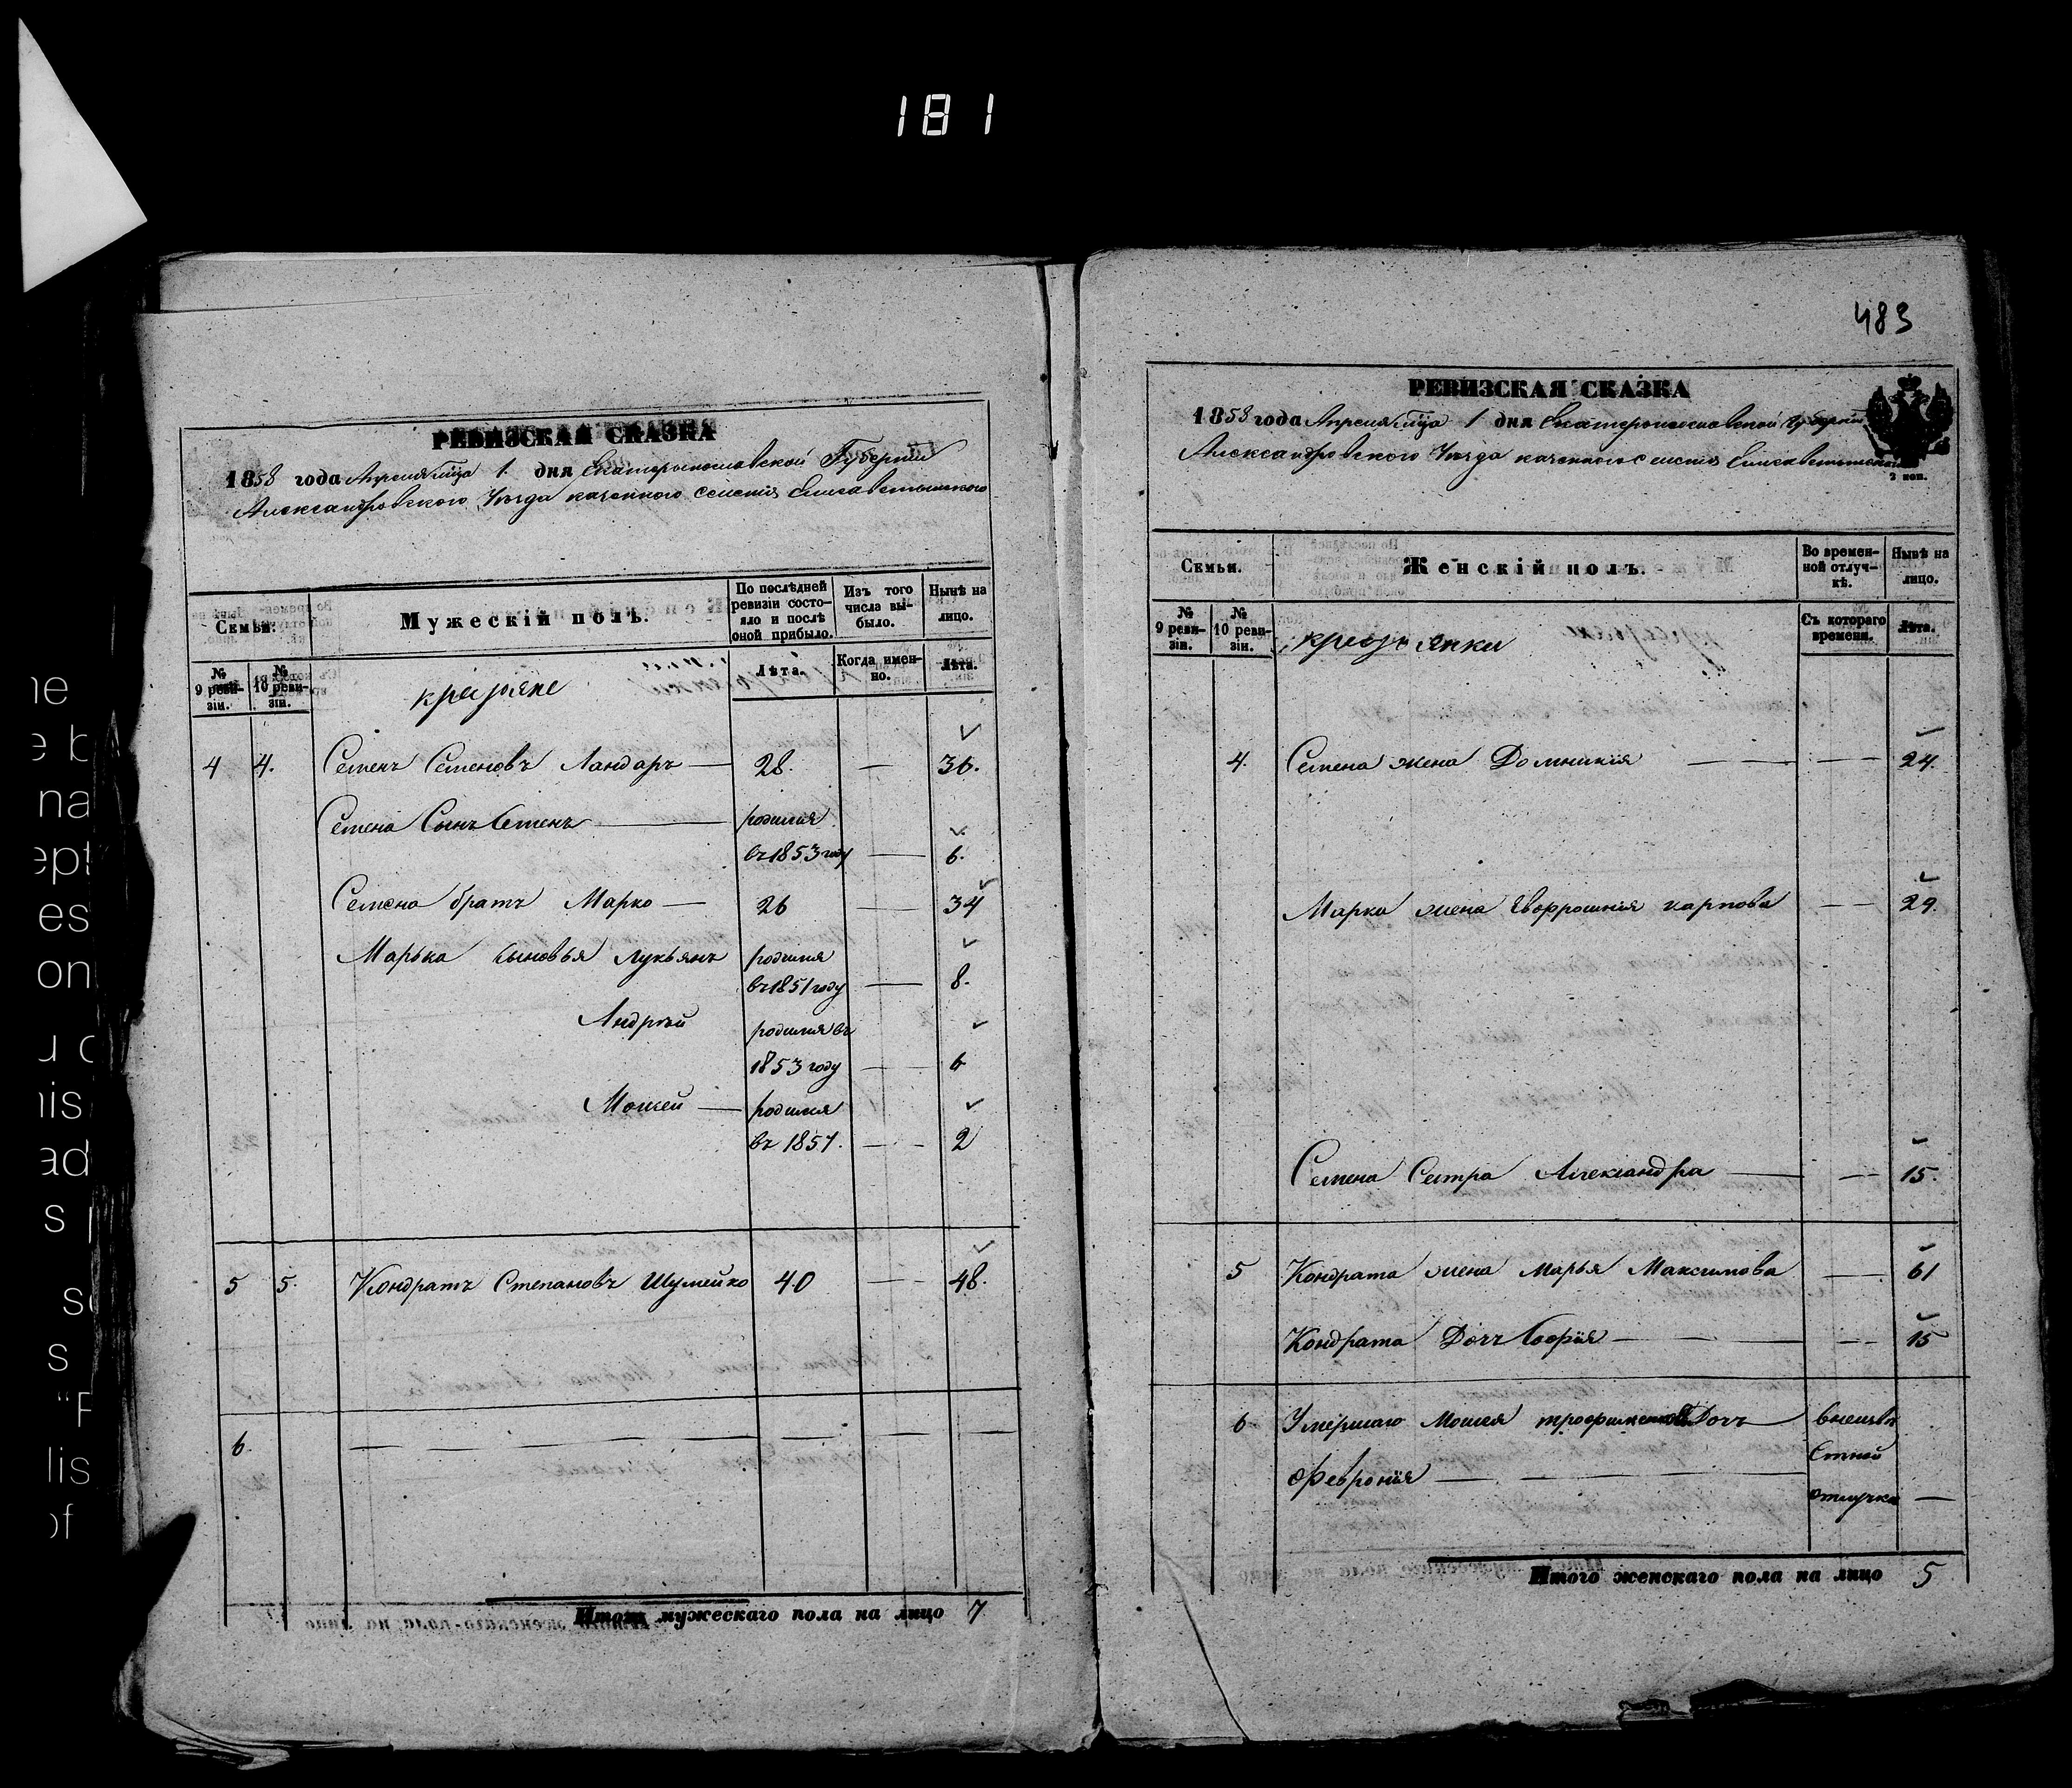 181
483
РЕВИЗСКАЯ СКАЗКА
1858 года Апреля м̃ца 1. дня Екатеринославской Губернии
Александровского Уѣзда казенного селенія Елисаветинского
Семьи.
Мужескій полъ.
По послѣдней ревизіи состояло и послѣ оной прибыло.
Изъ того числа выбыло.
Нынѣ на лицо.
№ 9 ревизіи.
№ 10 ревизіи.
Лѣта.
Когда именно.
Лѣта.
крестяне
4 4. Семенъ Семеновъ Ландарь — 28. — 36.
Семена Сынъ Семенъ — родился
въ 1853 году — 6.
Семена братъ Марко — 26 — 34
Марька сыновья Лукьянъ родился
въ 1851 году — 8.
Андрѣй родился въ
1853 году — 6
Мосѣй — родился
въ 1857. — 2
5 5. Кондратъ Степановъ Шумейко 40 — 48.
6.
Итого мужескаго пола на лицо 7
РЕВИЗСКАЯ СКАЗКА
1858 года Апреля м̃ца 1 дня Екатеринославской Губерніи
Александровского Уѣзда казенного селенія Елисаветинского
2 коп.
Семьи.
Женскій полъ.
Во временной отлучкѣ.
Нынѣ на лицо.
№ 9 ревизіи.
№ 10 ревизіи.
Съ котораго времени.
Лѣта.
крестянки
4. Семена жена Домникія — 24.
Марка жена Евфросинія карпова — 29.
Семена Сестра Александра — 15.
5 Кондрата жена Марья Максимова — 61
Кондрата Дочь Софія — 15
6 Умершаго Мосея Дочь
Февронія —
отлучке —
Итого женскаго пола на лицо 5